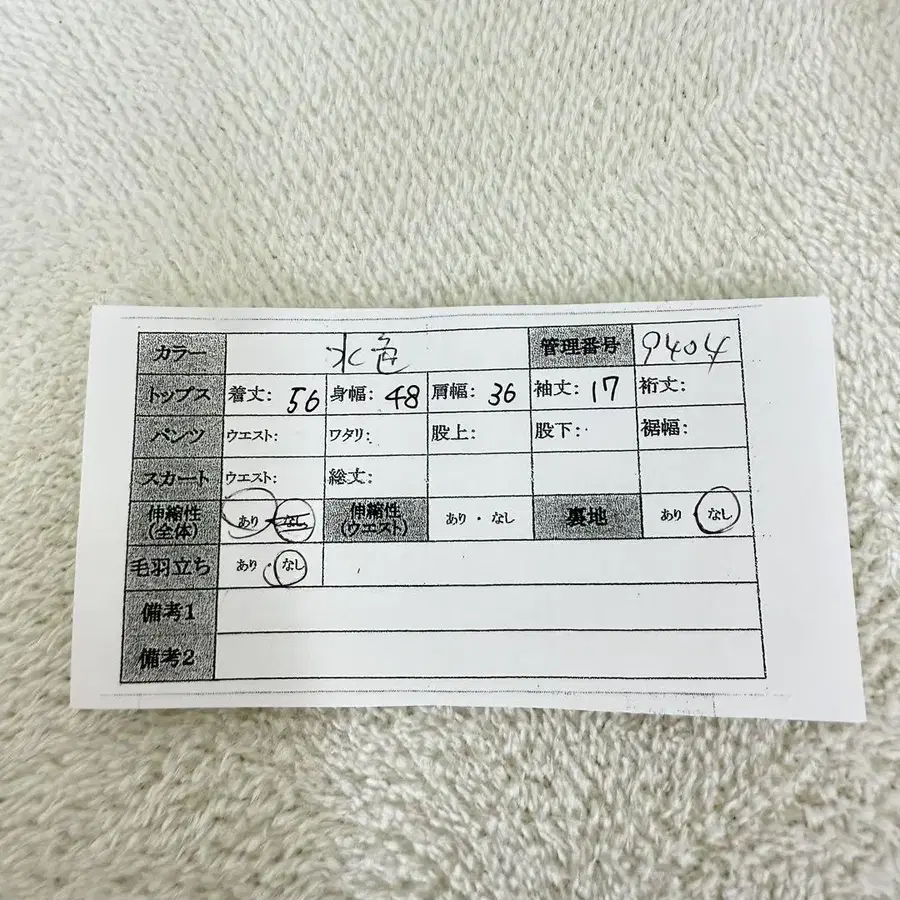 カラー 水色 管理番号 9404
トップス 着丈: 56 身幅: 48 肩幅: 36 袖丈: 17 裄丈:
パンツ ウエスト: ワタリ: 股上: 股下: 裾幅:
スカート ウエスト: 総丈:
伸縮性(全体) あり・なし 伸縮性(ウエスト) あり・なし 裏地 あり なし
毛羽立ち あり・なし
備考1
備考2